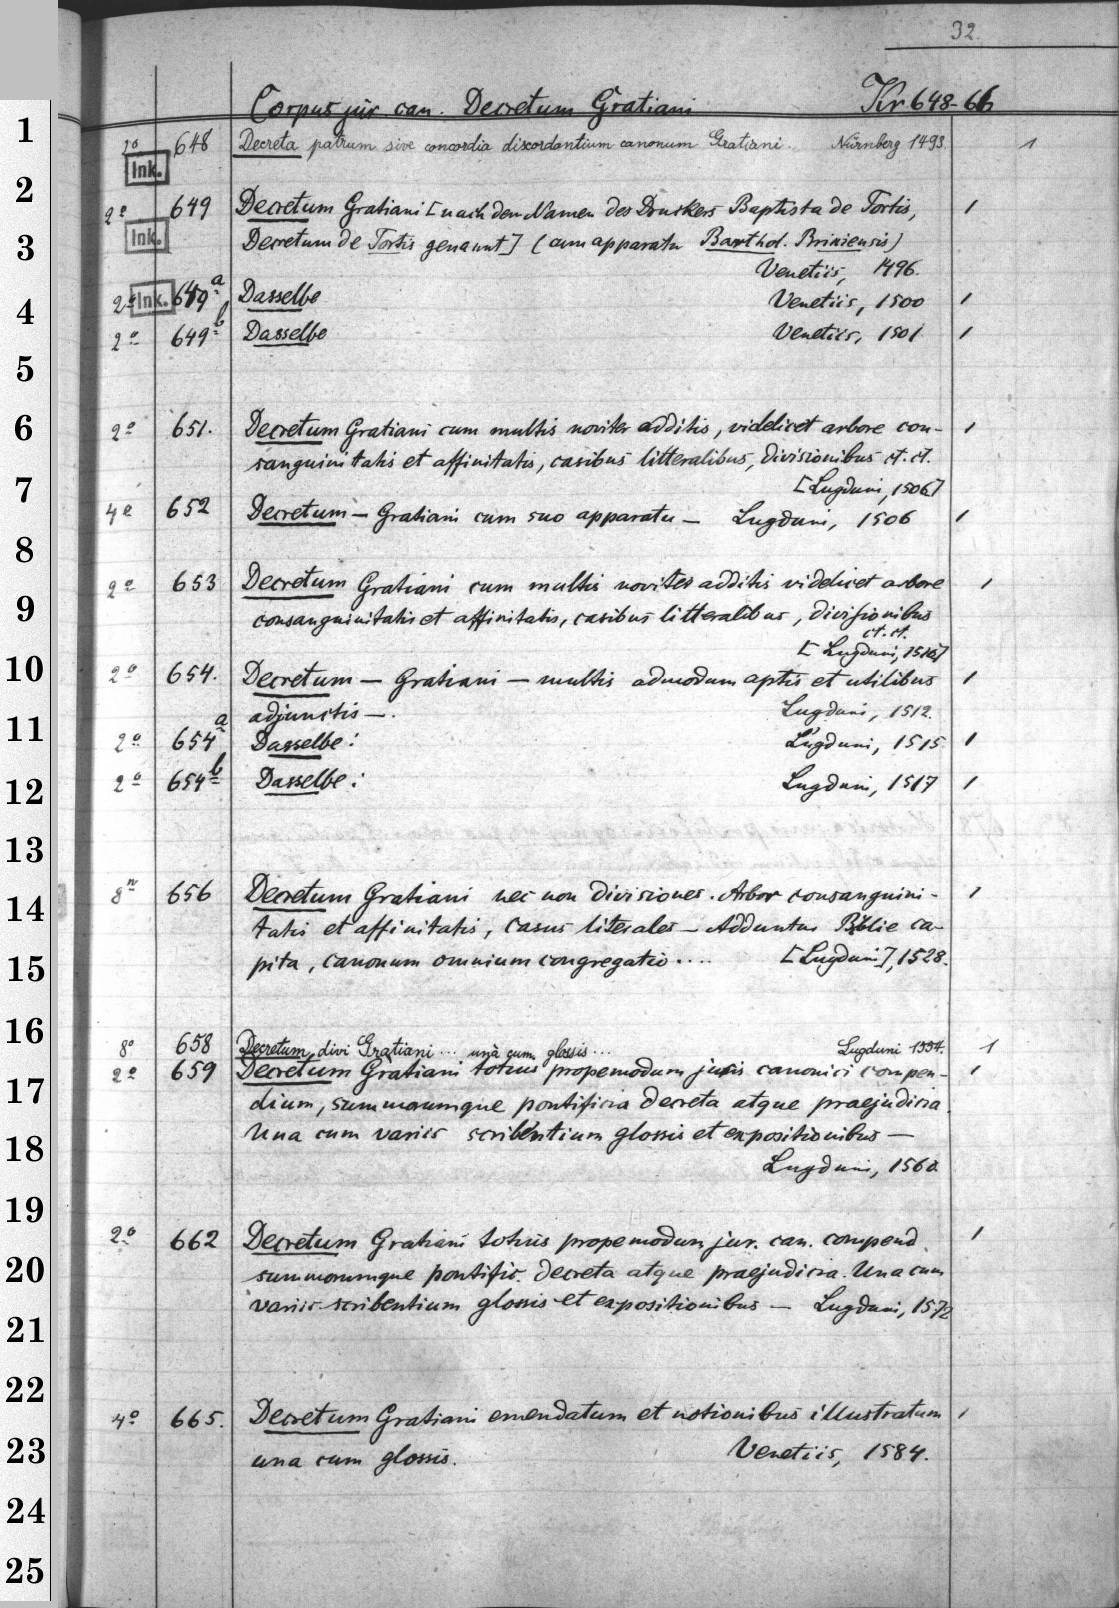 32.
Corpus jur. can. Decretum Gratiani Kr 648-66
1
2° 648 Decreta patrum sive concordia discordantium canonum Gratiani. Nürnberg 1493. 1
Ink.
2
2° 649 Decretum Gratiani [nach dem Namen des Druckers Baptista de Tortis, 1
Ink.
3
Decretum de Tortis genannt] (cum apparatu Barthol. Brixiensis)
Venetiis, 1496.
2° Ink. 649a Dasselbe Venetiis, 1500 1
4
2° 649b Dasselbe Venetiis, 1501 1
5
6
2° 651. Decretum Gratiani cum multis noviter additis, videlicet arbore con- 1
sanguinitatis et affinitatis, casibus litteralibus, divisionibus ct. ct.
7
[Lugduni, 1506]
4° 652 Decretum — Gratiani cum suo apparatu — Lugduni, 1506 1
8
2° 653 Decretum Gratiani cum multis noviter additis videlicet arbore 1
9
consanguinitatis et affinitatis, casibus litteralibus, divisionibus
ct. ct.
[Lugduni, 1510]
10
2° 654. Decretum — Gratiani — multis admodum aptis et utilibus 1
adjunctis —. Lugduni, 1512.
11
2° 654a Dasselbe: Lugduni, 1515 1
12
2° 654b Dasselbe: Lugduni, 1517 1
13
14
8° 656 Decretum Gratiani nec non divisiones. Arbor consanguini- 1
tatis et affinitatis, casus literales — Adduntur Biblie ca-
15
pita, canonum omnium congregatio .... [Lugduni], 1528.
16
8° 658 Decretum divi Gratiani ... unà cum glossis ... Lugduni 1554. 1
2° 659 Decretum Gratiani totius propemodum juris canonici compen- 1
17
dium, summorumque pontificia decreta atque praejudicia
18
Una cum variis scribentium glossis et expositionibus —
Lugduni, 1560.
19
2° 662 Decretum Gratiani totius propemodum jur. can. compend. 1
20
summorumque pontific. decreta atque praejudicia. Una cum
variis scribentium glossis et expositionibus — Lugduni, 1572
21
22
4° 665. Decretum Gratiani emendatum et notionibus illustratum 1
23
una cum glossis. Venetiis, 1584.
24
25